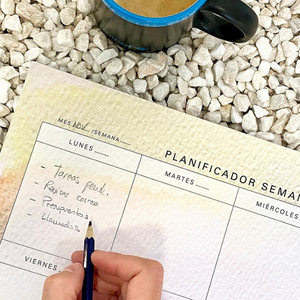 PLANIFICADOR SEMAN
MES NOV /SEMANA
LUNES
MARTES
MIÉRCOLES
- Tareas pend.
- Revisar correo
- Presupuestos
- Llamadas
VIERNES